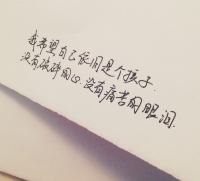 我希望自己依旧是个孩子.
没有破碎的心.没有痛苦的眼泪.